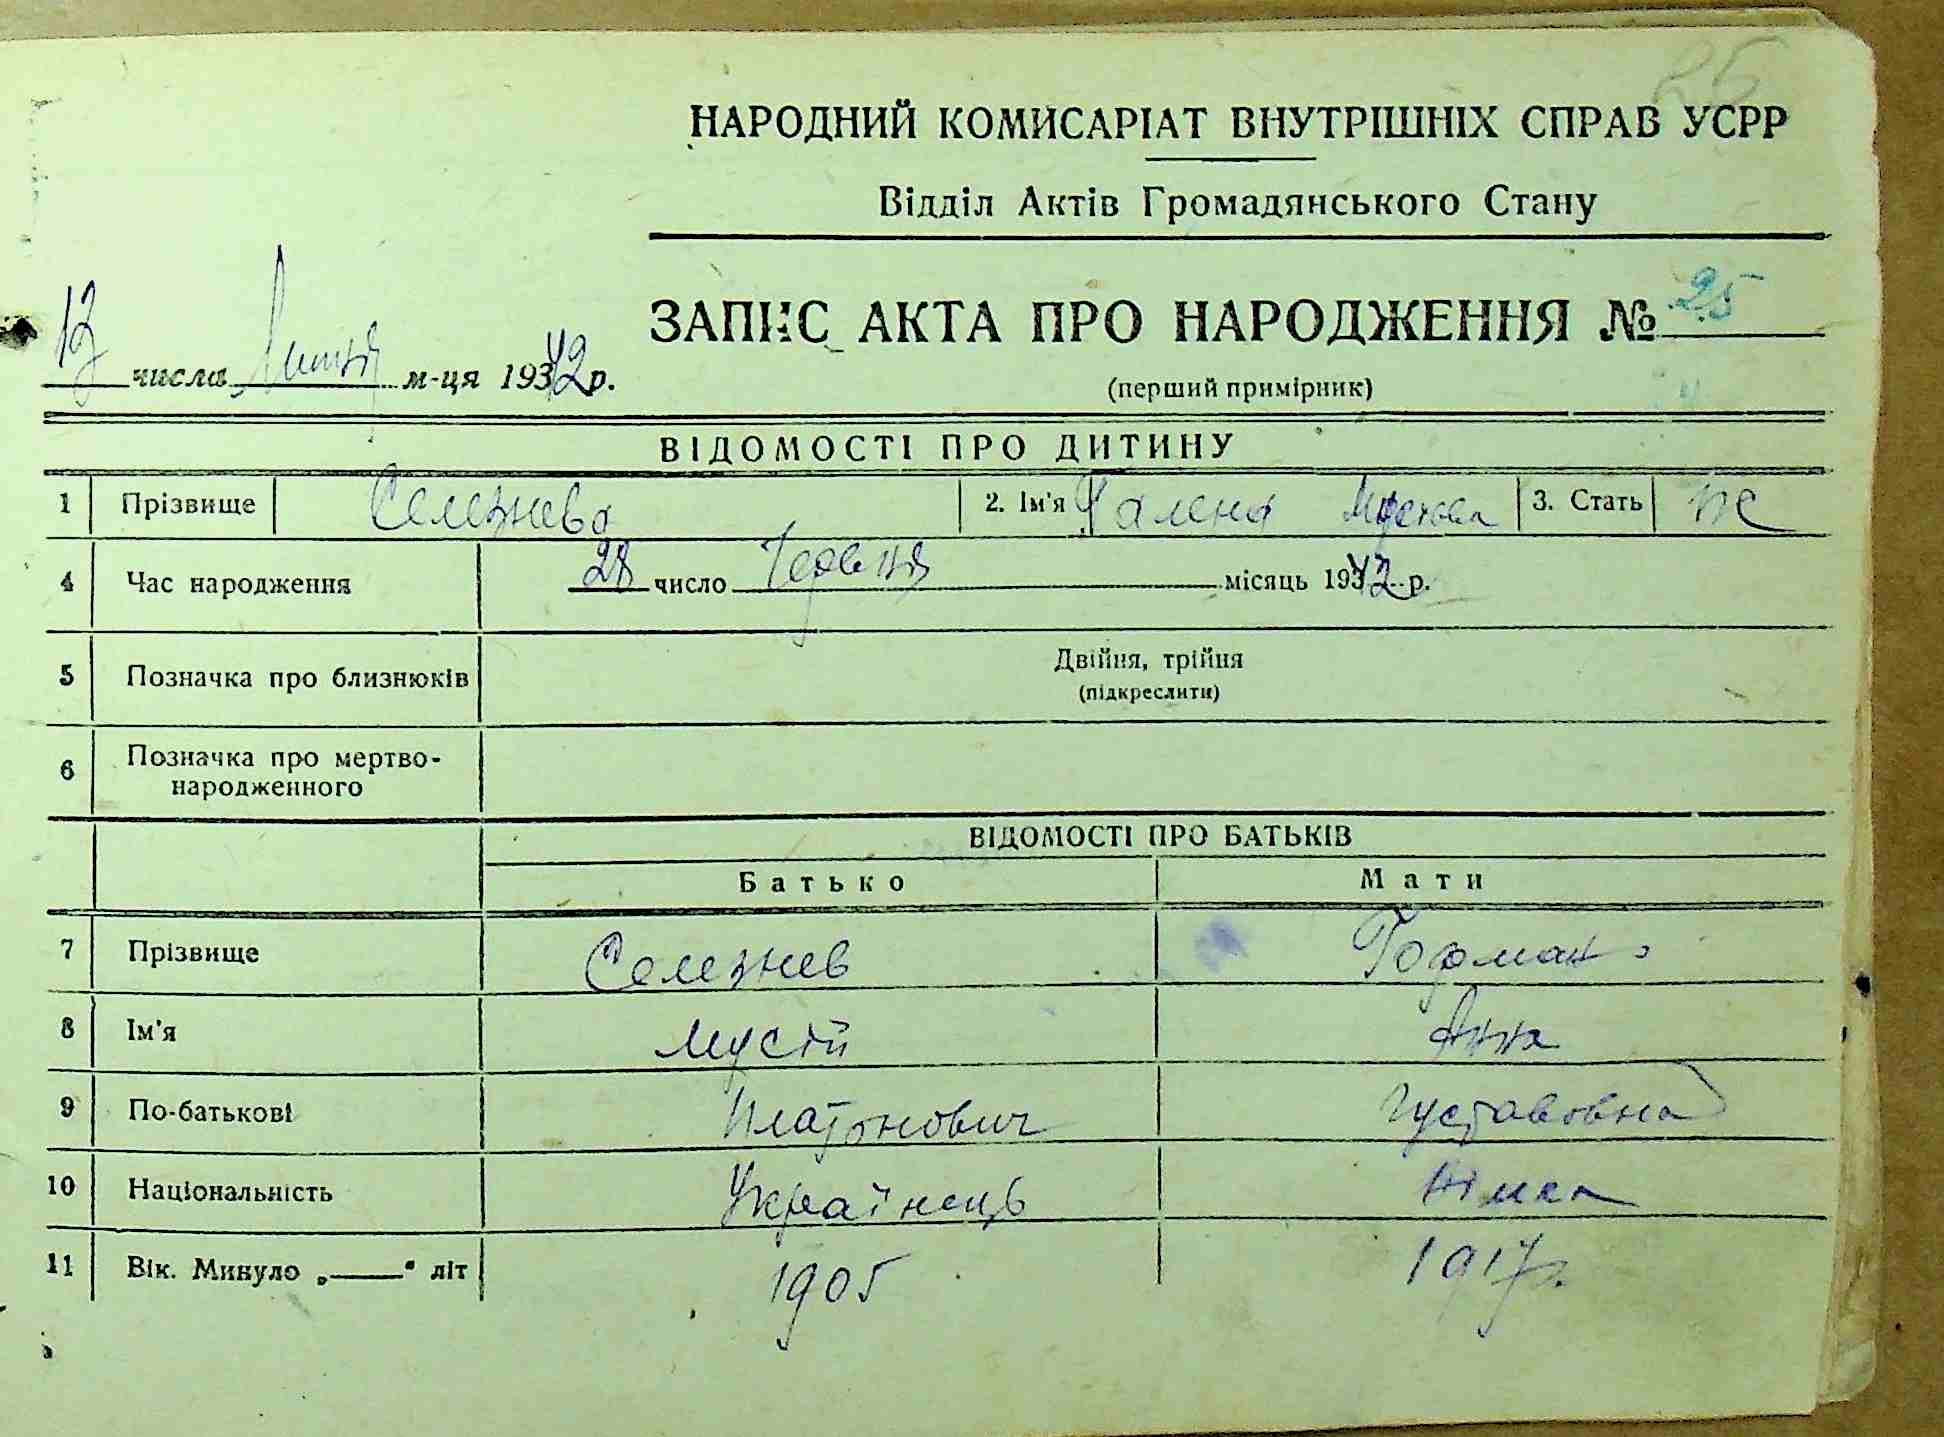 25
НАРОДНИЙ КОМИСАРІАТ ВНУТРІШНІХ СПРАВ УСРР
Відділ Актів Громадянського Стану
ЗАПИС АКТА ПРО НАРОДЖЕННЯ № 25
числа Липня м-ця 1942 р.
(перший примірник)
ВІДОМОСТІ ПРО ДИТИНУ
1 Прізвище Селезнева 2. Ім'я Галена 3. Стать ж
4 Час народження 28 число Червня місяць 1942 р.
5 Позначка про близнюків Двійня, трійня
(підкреслити)
6 Позначка про мертво-
народженного
ВІДОМОСТІ ПРО БАТЬКІВ
Батько Мати
7 Прізвище Селезнев Гофман
8 Ім'я Мусій Анна
9 По-батькові Платонович Густавовна
10 Національність Українець Німка
11 Вік. Минуло „——" літ 1905 1917 р.